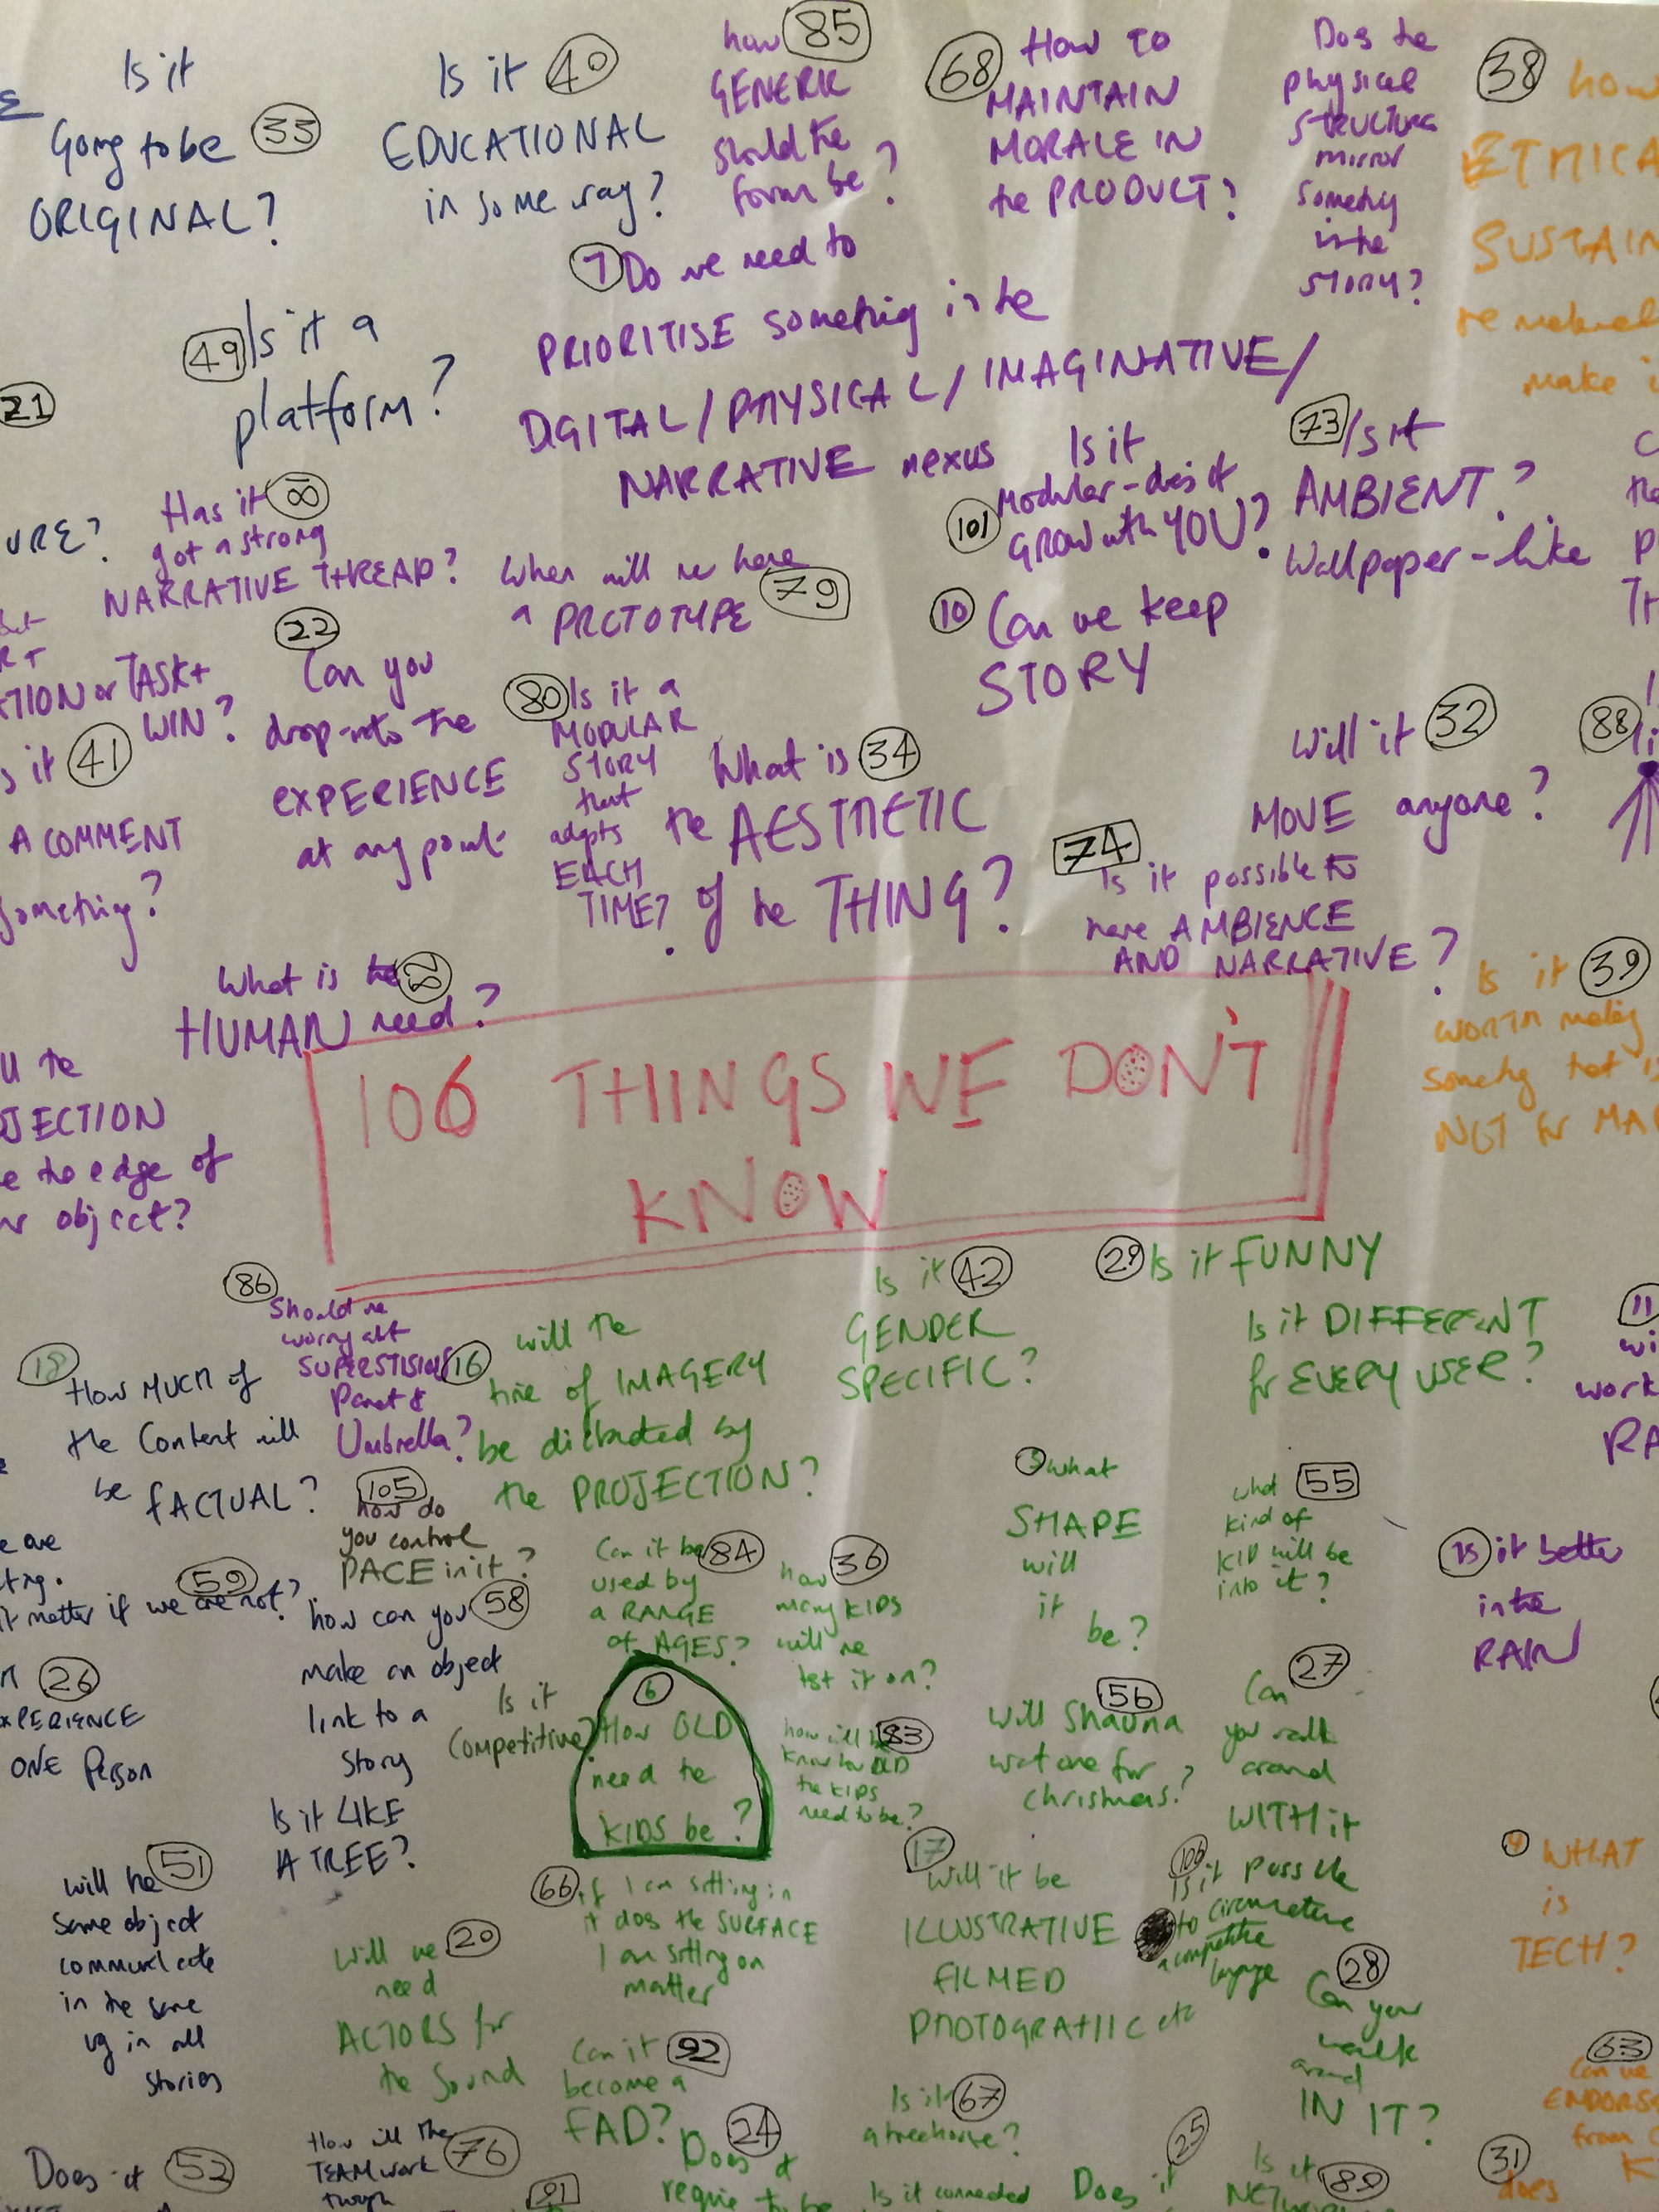 Is it
Going to be 33
ORIGINAL?
Is it 40
EDUCATIONAL
in some way?
how 85
GENERIC
should the
form be?
68 How to
MAINTAIN
MORALE IN
the PRODUCT?
Does the
physical
STRUCTURE
mirror
something
in the
STORY?
38 how
ETHICA
SUSTAIN
make i
49 Is it a
platform?
7 Do we need to
PRIORITISE something in the
DIGITAL/PHYSICAL/IMAGINATIVE/
NARRATIVE nexus
21
URE?
Has it
got a strong
NARRATIVE THREAD?
When will we have
a PROTOTYPE 79
Is it
101 Modular - does it
GROW with YOU?
73 Is it
AMBIENT?
Wallpaper-like
10 Can we keep
STORY
TION or TASK+
WIN?
s it 41
A COMMENT
something?
22
Can you
drop into the
EXPERIENCE
at any point
80 Is it a
MODULAR
STORY
that
adapts
EACH
TIME?
What is 34
the AESTHETIC
of the THING?
Will it 32
MOVE anyone?
88
74
Is it possible to
have AMBIENCE
AND NARRATIVE?
What is the
HUMAN need?
Is it 39
WORTH making
something that is
NOT for MA
106 THINGS WE DON'T
KNOW
JECTION
e the edge of
object?
86
Should we
worry abt
Umbrella?
16 will the
line of IMAGERY
be dictated by
the PROJECTION?
Is it 42
GENDER
SPECIFIC?
29 Is it FUNNY
Is it DIFFERENT
for EVERY USER?
11
wi
work
RA
How MUCH of
the content will
be FACTUAL?
105
how do
you control
PACE in it?
Can it be 84
used by
a RANGE
of AGES?
how 36
many KIDS
will we
test it on?
what
SHAPE
will
it
be?
what 55
kind of
KID will be
into it?
is it better
in the
RAIN
e are
59
it matter if we are not?
26
XPERIENCE
ONE PERSON
how can you 58
make an object
link to a
story
Is it
COMPETITIVE?
6
How OLD
need the
KIDS be?
how will we 83
know how OLD
the KIDS
need to be?
Will Shauna 56
want one for
christmas?
27
Can
you walk
around
WITH it
Is it LIKE
A TREE?
will the 51
same object
communicate
in the same
way in all
stories
Will we 20
need
ACTORS for
the Sound
66 if I am sitting in
it does the SURFACE
I am sitting on
matter
17
Will it be
ILLUSTRATIVE
FILMED
PHOTOGRAPHIC etc
106
is it possible
to circumvent
a competitive
28
Can you
walk
around
IN IT?
4 WHAT
is
TECH?
Can it 92
become a
FAD?
Is it 67
a treehouse?
63
Can we
ENDORS
from
K
Does it 52
How will the 76
TEAM work
though
91
24
Does it
require to be
Is it connected
25
Does it
Is it 89
31
does